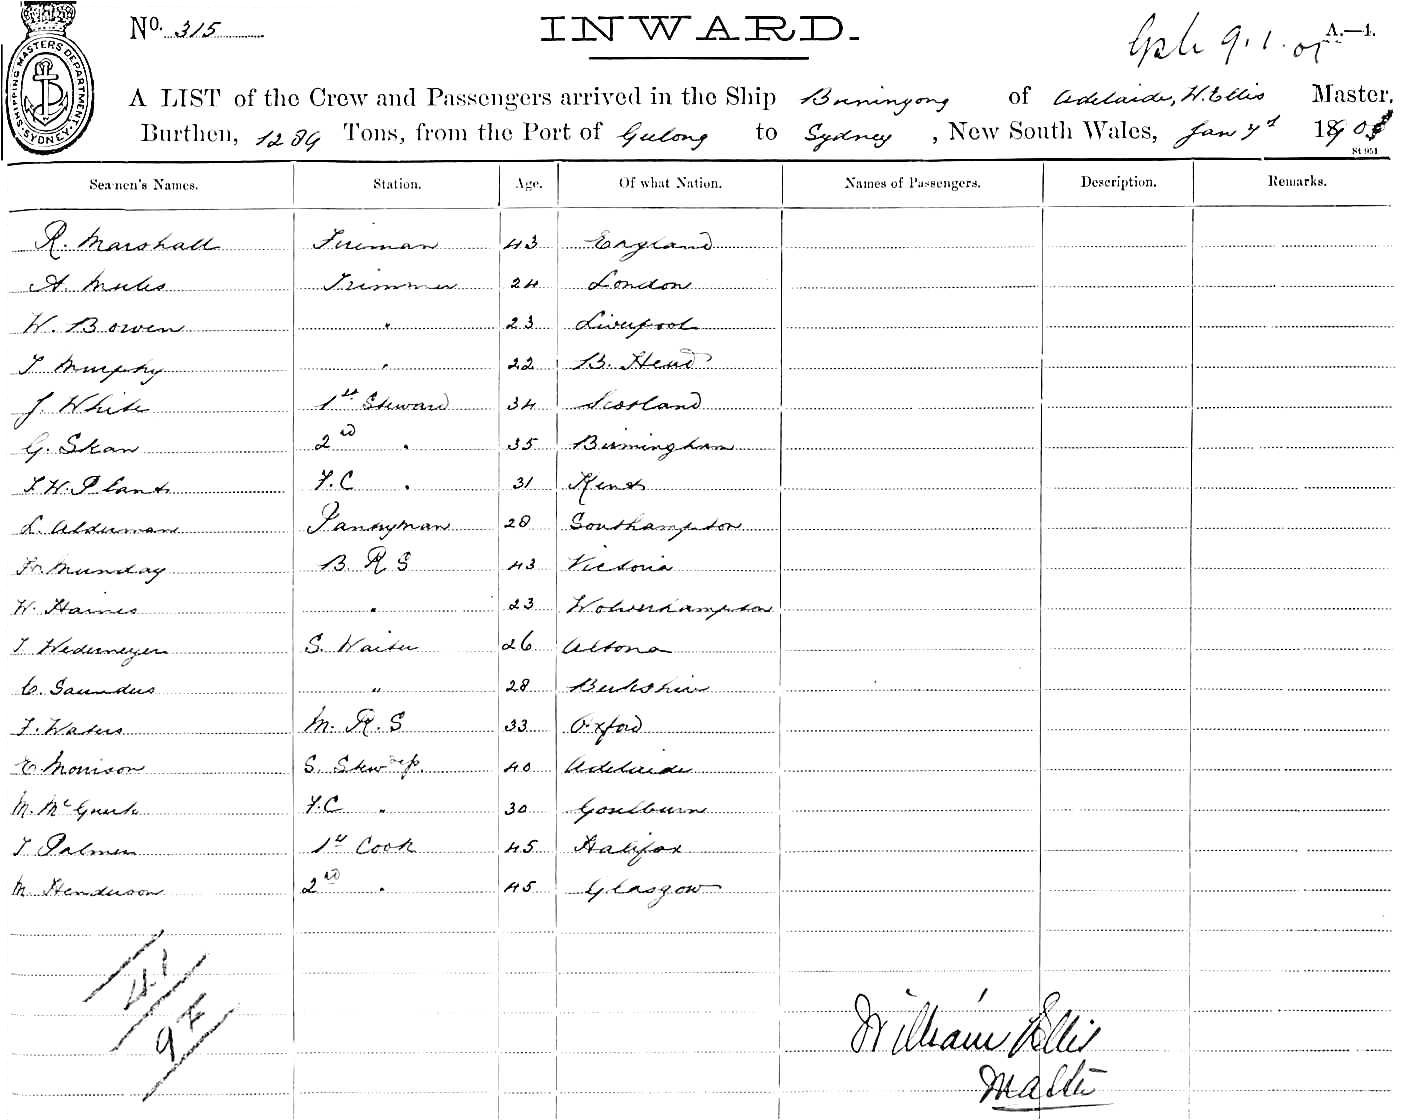 SHIPPING MASTERS DEPARTMENT SYDNEY
No. 315 INWARD. A.—4.
9.1.05
A LIST of the Crew and Passengers arrived in the Ship Buninyong of Adelaide, W. Ellis Master,
Burthen, 1289 Tons, from the Port of Geelong to Sydney, New South Wales, Jan 7th 1905
St 951
Seamen's Names. Station. Age. Of what Nation. Names of Passengers. Description. Remarks.
R. Marshall Fireman 43 England
A. Miles Trimmer 24 London
W. Bowen " 23 Liverpool
T Murphy " 22 B. Head
J. White 1st Steward 34 Scotland
G. Skan 2nd " 35 Birmingham
F W. Plant F.C " 31 Kent
L. Alderman Pantryman 28 Southampton
Munday B R S 43 Victoria
W. Haines " 23 Wolverhampton
T Wedemeyer S. Waiter 26 Altona
C. Saunders " 28 Berkshire
F. Waters M. R. S 33 Oxford
E Morrison S. Stewdess 40 Adelaide
M. McGuirk F.C " 30 Goulburn
T Palmer 1st Cook 45 Halifax
M Henderson 2nd " 45 Glasgow
William Ellis
Master